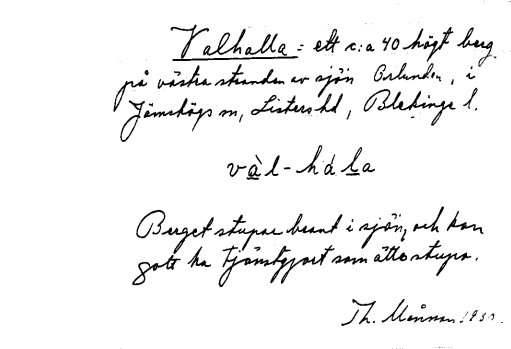 Valhalla = ett c:a 40 högt berg
på västra stranden av sjön Orlunden, i
Jämshögs sn, Listers hd, Blekinge l.
v à l - h á l a
Berget stupar brant i sjön, och kan
gott ha tjänstgjort som ättestupa.
Th. 193